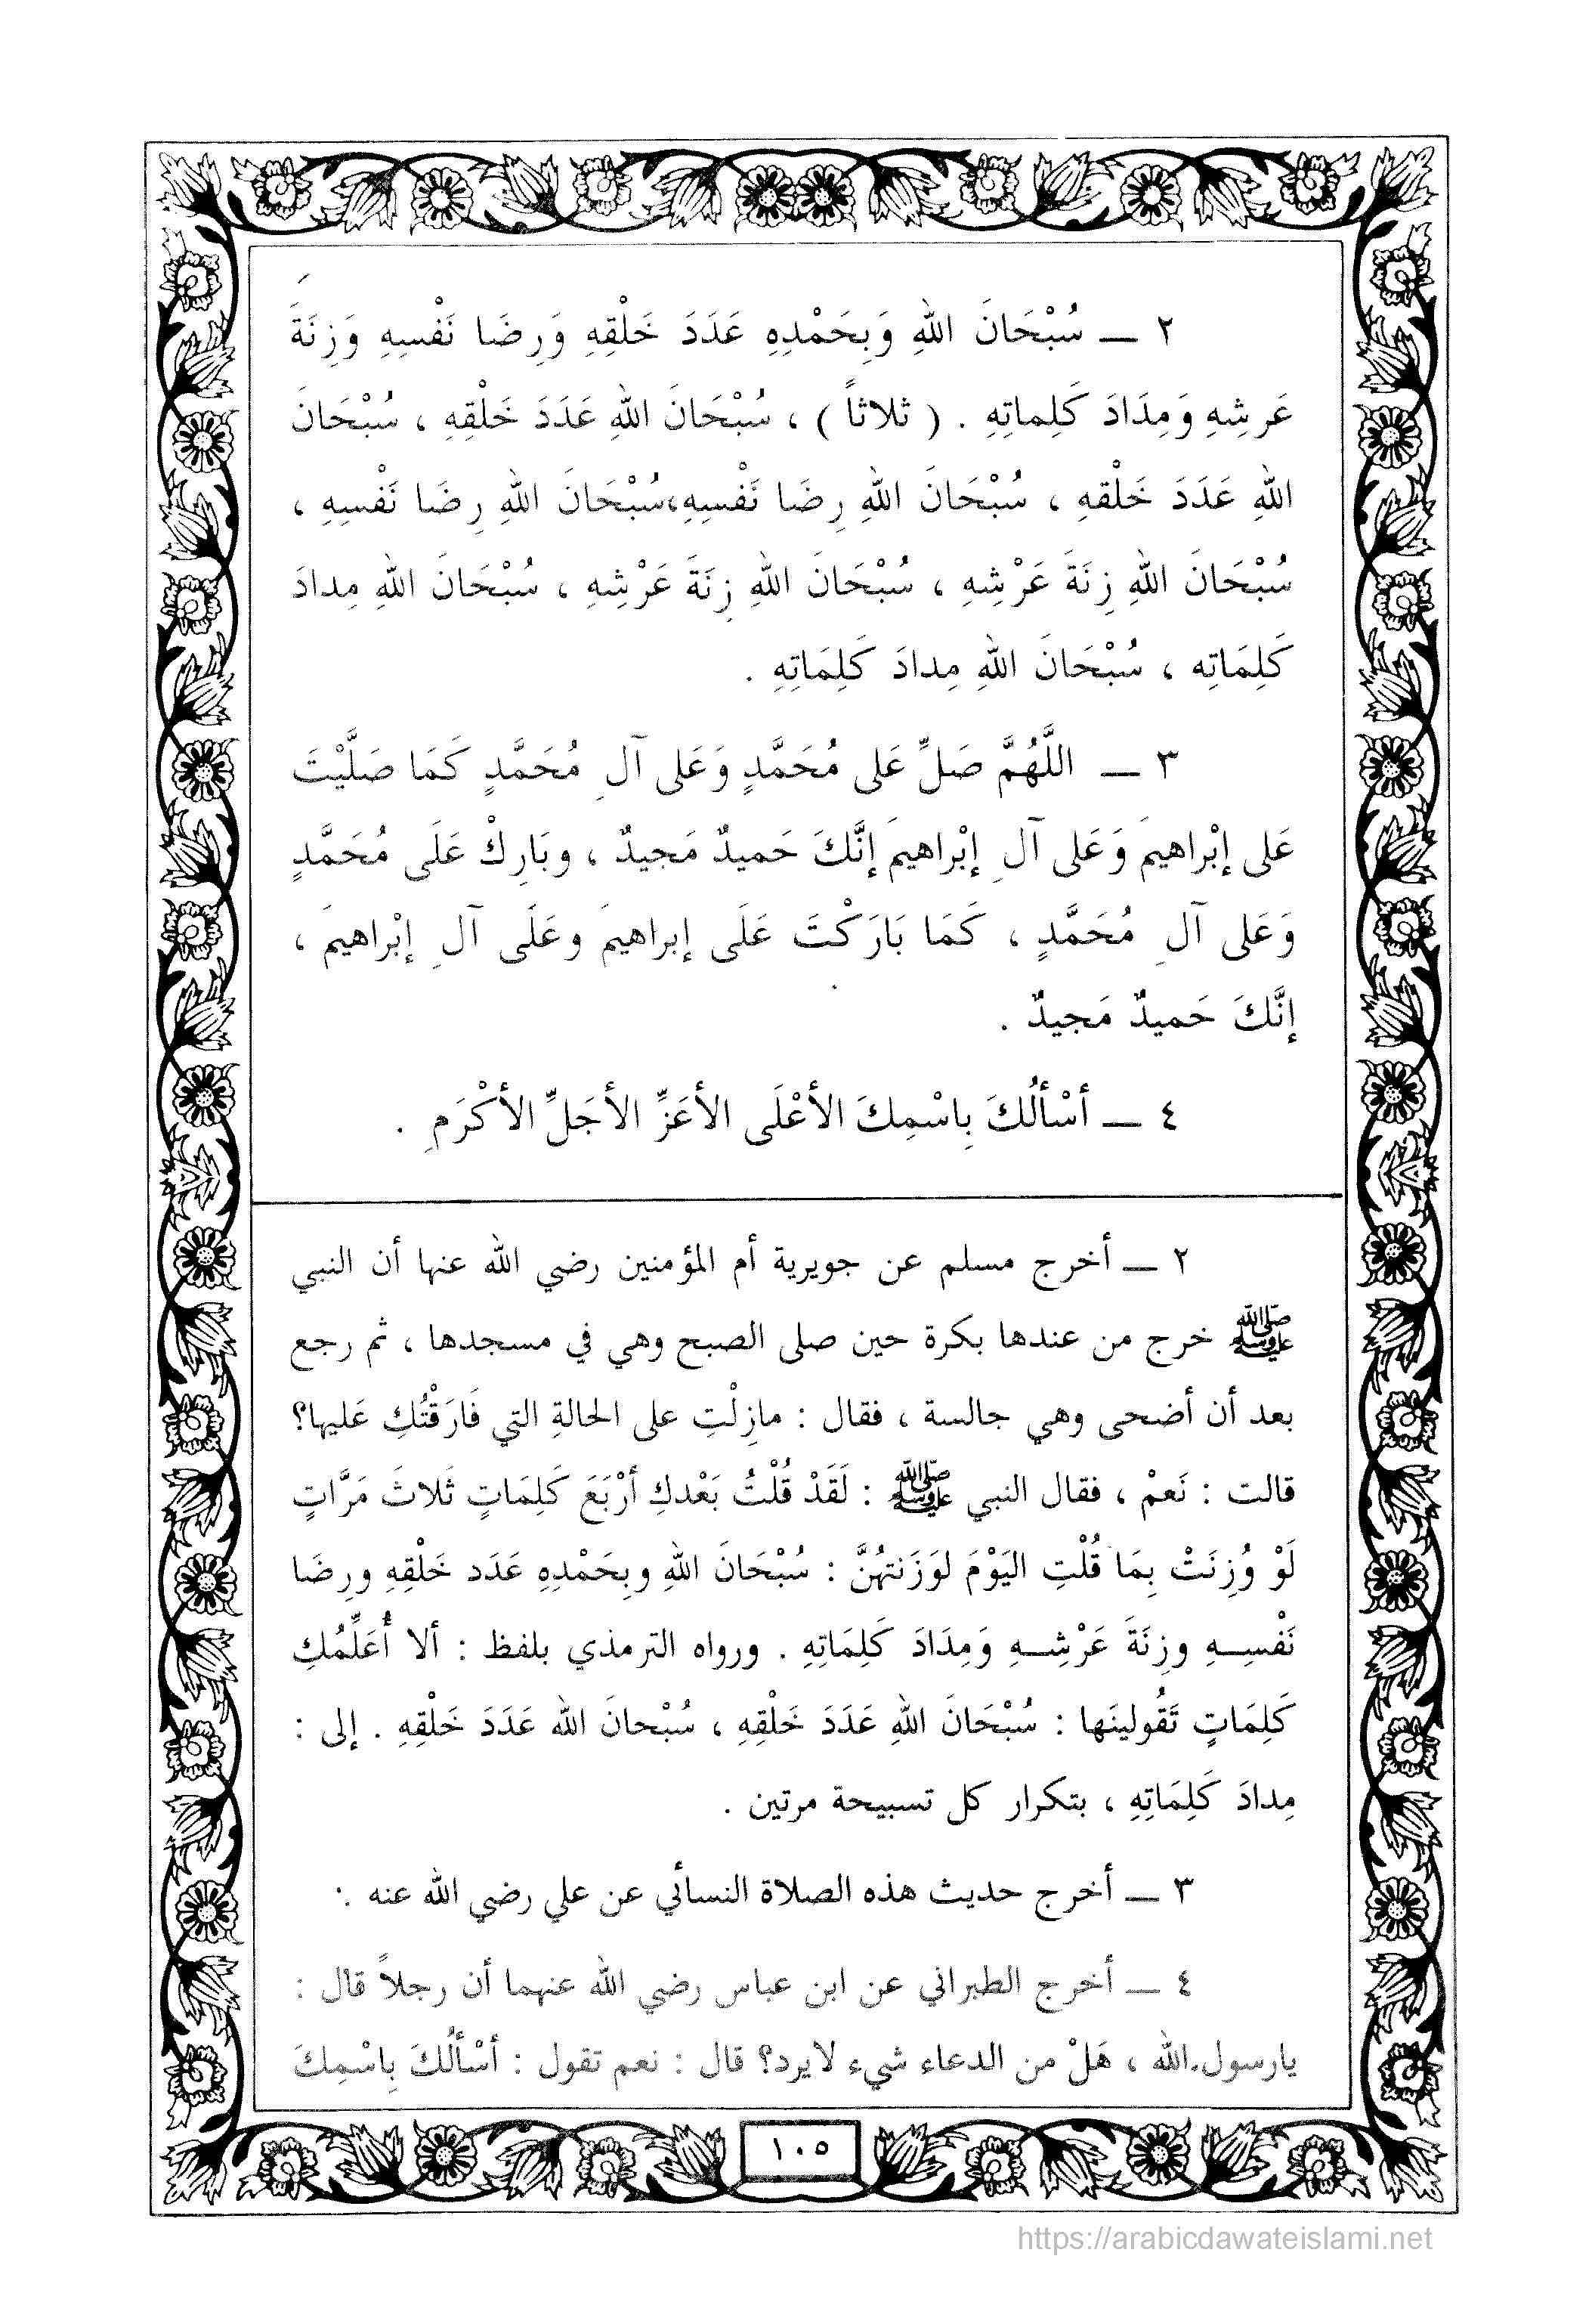 ٢ ـ سُبْحَانَ اللهِ وَبِحَمْدِهِ عَدَدَ خَلْقِهِ وَرِضَا نَفْسِهِ وَزِنَةَ
عَرشِهِ وَمِدَادَ كَلِماتِهِ . ( ثلاثاً ) ، سُبْحَانَ اللهِ عَدَدَ خَلْقِهِ ، سُبْحَانَ
اللهِ عَدَدَ خَلْقهِ ، سُبْحَانَ اللهِ رِضَا نَفْسِهِ،سُبْحَانَ اللهِ رِضَا نَفْسِهِ ،
سُبْحَانَ اللهِ زِنَةَ عَرْشِهِ ، سُبْحَانَ اللهِ زِنَةَ عَرْشِهِ ، سُبْحَانَ اللهِ مِدادَ
كَلِمَاتِه ، سُبْحَانَ اللهِ مِدادَ كَلِمَاتِهِ .
٣ ـ اللَّهُمَّ صَلِّ عَلى مُحَمَّدٍ وَعَلى آلِ مُحَمَّدٍ كَمَا صَلَّيْتَ
عَلى إبْراهيمَ وَعَلى آلِ إبْراهيمَ إنَّكَ حَميدٌ مَجيدٌ ، وبَارِكْ عَلَى مُحَمَّدٍ
وَعَلى آلِ مُحَمَّدٍ ، كَمَا بَارَكْتَ عَلَى إبراهيمَ وعَلَى آلِ إبْراهيمَ ،
إنَّكَ حَميدٌ مَجيدٌ .
٤ ـ أسْألُكَ بِاسْمِكَ الأعْلَى الأعَزِّ الأجَلِّ الأكْرَمِ .
٢ ـ أخرج مسلم عن جويرية أم المؤمنين رضي الله عنها أن النبي
ﷺ خرج من عندها بكرة حين صلى الصبح وهي في مسجدها ، ثم رجع
بعد أن أضحى وهي جالسة ، فقال : مازِلْتِ على الحالةِ التي فَارَقْتُكِ عَليها؟
قالت : نَعمْ ، فقال النبي ﷺ : لَقَدْ قُلْتُ بَعْدكِ أرْبَعَ كَلِمَاتٍ ثَلاثَ مَرَّاتٍ
لَوْ وُزِنَتْ بِمَا قُلْتِ اليَوْمَ لوَزَنتهُنَّ : سُبْحَانَ اللهِ وبِحَمْدِهِ عَدَد خَلْقِهِ ورِضَا
نَفْسِهِ وزِنَةَ عَرْشِهِ وَمِدَادَ كَلِمَاتِهِ . ورواه الترمذي بلفظ : ألا أُعَلِّمُكِ
كَلِمَاتٍ تَقُولينَها : سُبْحَانَ اللهِ عَدَدَ خَلْقِهِ ، سُبْحانَ الله عَدَدَ خَلْقِهِ . إلى :
مِدادَ كَلِمَاتِهِ ، بتكرار كل تسبيحة مرتين .
٣ ـ أخرج حديث هذه الصلاة النسائي عن علي رضي الله عنه .
٤ ـ أخرج الطبراني عن ابن عباس رضي الله عنهما أن رجلاً قال :
يارسول الله ، هَلْ من الدعاء شيء لايرد؟ قال : نعم تقول : أسْألُكَ بِاسْمِكَ
١٠٥
https://arabicdawateislami.net